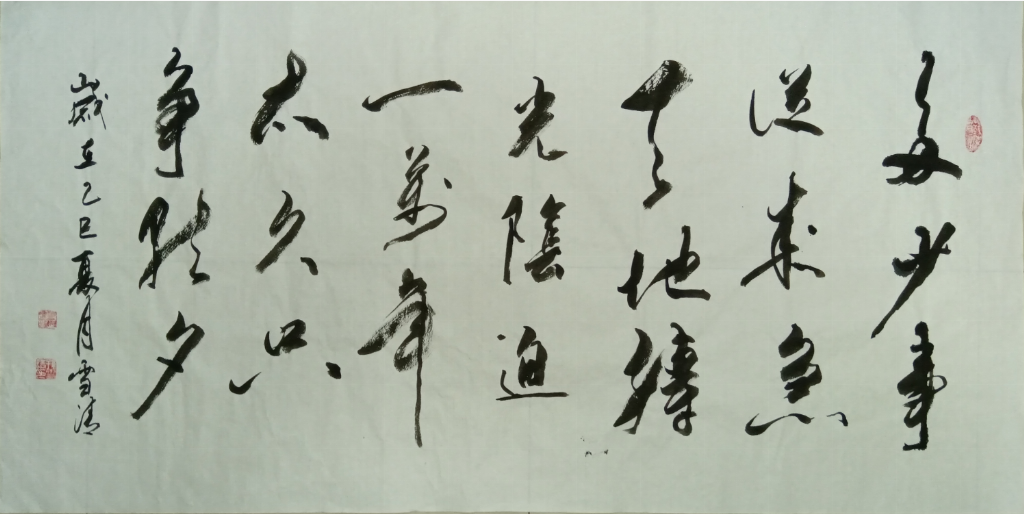 多少事
從来急
天地轉
光陰迫
一萬年
太久只
争朝夕
歲在乙巳夏月雪清